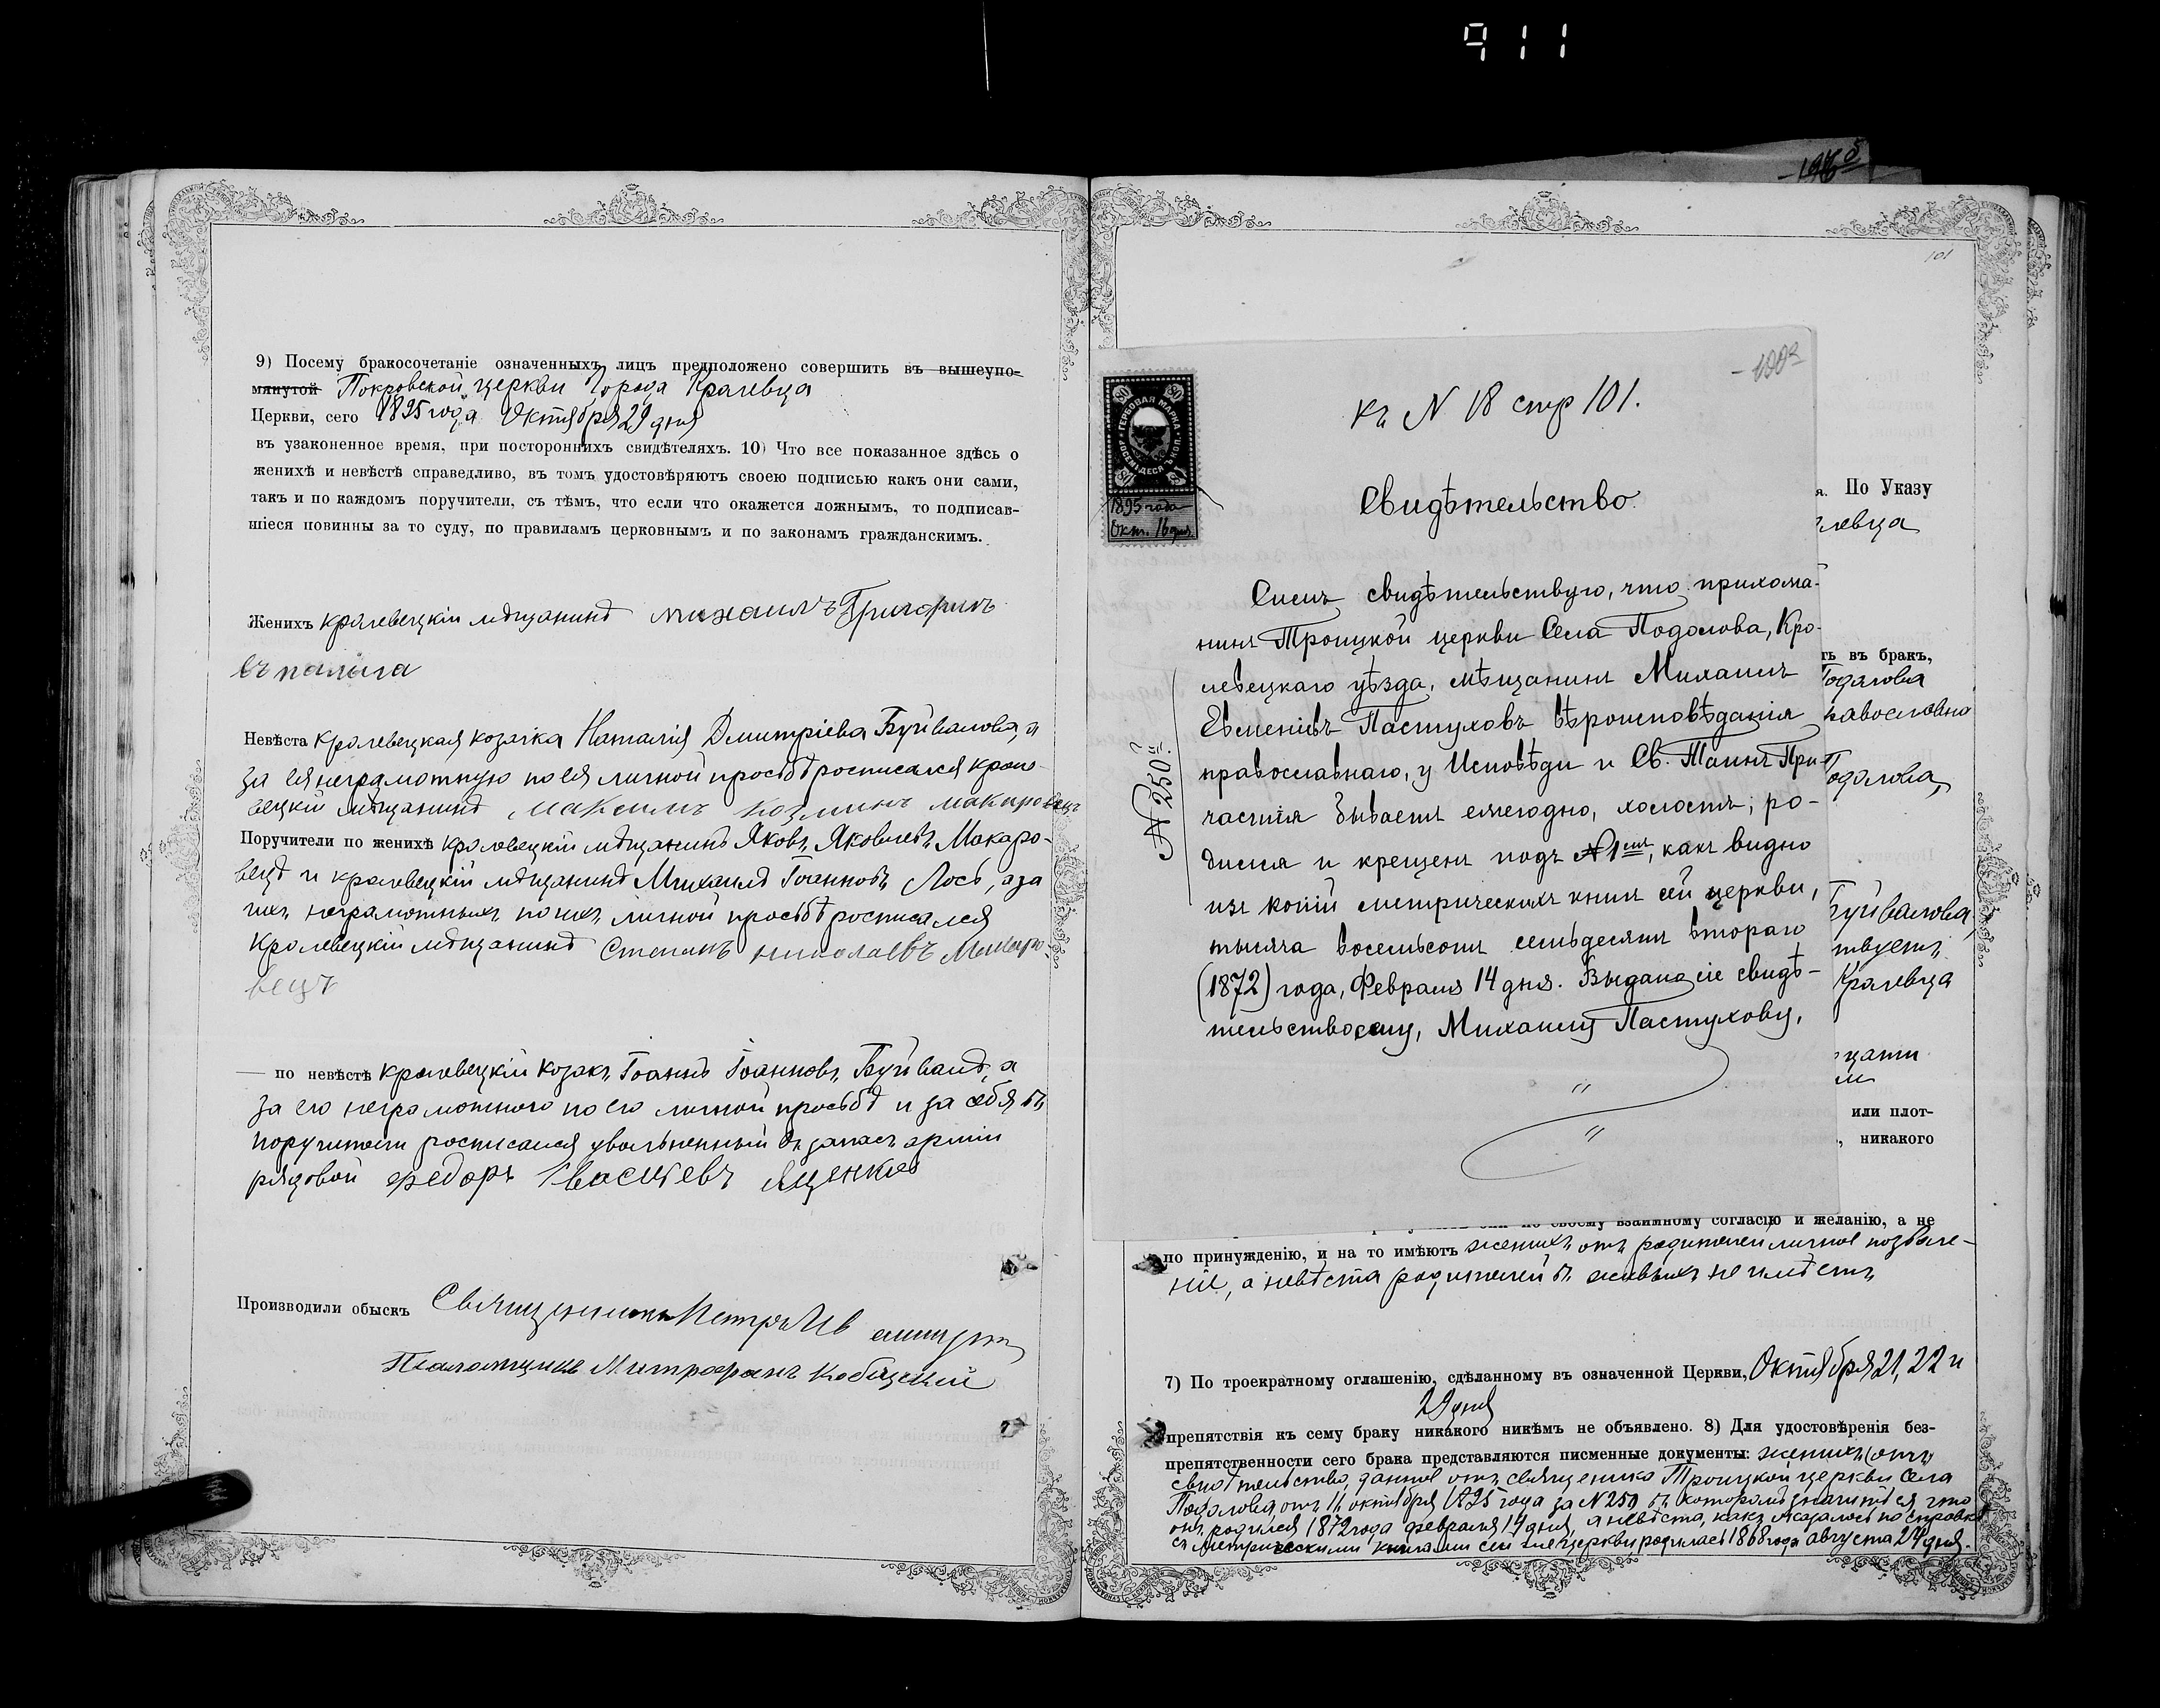 911
9) Посему бракосочетаніе означенныхъ лицъ предположено совершить въ вышеупо-
мянутой Покровской церкви Города Кралевца
Церкви, сего 1895 года Октября 29 дня
въ узаконенное время, при постороннихъ свидѣтеляхъ. 10) Что все показанное здѣсь о
женихѣ и невѣстѣ справедливо, въ томъ удостовѣряютъ своею подписью какъ они сами,
такъ и по каждомъ поручители, съ тѣмъ, что если что окажется ложнымъ, то подписав-
шіеся повинны за то суду, по правиламъ церковнымъ и по законамъ гражданскимъ.
Женихъ кралевецкій мѣщанинъ михаилъ Григорив
Невѣста кролевецкая козачка Наталія Дмитріева Буйвалова, а
за ея неграмотную по ея личной просьбѣ росписался кроле-
вецкій мѣщанинъ максимъ козминъ
Поручители по женихѣ кролевецкій мѣщанинъ Яковъ Яковлевъ Макаро-
вецъ и кралевецкій мѣщанинъ Михаилъ Іоанновъ Лось, а за
нихъ неграмотныхъ по ихъ личной просьбѣ росписался
Кролевецкій мѣщанинъ Степанъ николаевъ Макаро-
вецъ
по невѣстѣ кралевецкій козакъ Іоаннъ Іоанновъ Буйвалъ, а
за его неграмотного по его личной просьбѣ и за себя въ
поручители росписался увольненный въ запасъ арміи
рядовой федоръ ященко
Производили обыскъ Священникъ Петръ
Псаломщикъ Митрофанъ
101
къ N 18 стр 101.
ГЕРБОВАЯ МАРКА
80
1895 года
Окт. 16 дня.
Свидѣтельство.
Симъ свидѣтельствую, что прихожа-
нинъ Троицкой церкви Села Подолова, Кро-
левецкаго уѣзда, мѣщанинъ Михаилъ
Евменіевъ Пастуховъ вѣроисповѣданія
православнаго, у Исповѣди и Св. Таинъ При-
частія бываетъ ежегодно, холостъ; ро-
дился и крещенъ подъ №1мъ, какъ видно
изъ копій метрическихъ книгъ сей церкви,
тысяча восемьсотъ семьдесятъ втораго
(1872) года, Февраля 14 дня. Выдано сіе свидѣ-
тельство ему, Михаилу Пастухову.
№ 250й
По Указу
ть въ бракъ,
Подолова
Подолова,
Буйвалова,
Кралевца
или плот-
никакого
взаимному согласію и желанію, а не
по принужденію, и на то имѣютъ женихъ отъ родителей личное позволе-
ніе, а невѣста родителей въ живыхъ не имѣетъ
7) По троекратному оглашенію, сдѣланному въ означенной Церкви, Октября 21, 22 и
29 дня
препятствія къ сему браку никакого никѣмъ не объявлено. 8) Для удостовѣренія без-
препятственности сего брака представляются писменные документы: женихъ отъ
свидѣтельство, данное отъ священника Троицкой церкви Села
Подолова, отъ 16 октября 1895 года за N 250 въ которомъ значится, что
онъ родился 1872 года февраля 14 дня, а невѣста, какъ оказалось по справкѣ
съ метрическими книгами сей же церкви родилась 1868 года августа 24 дня.